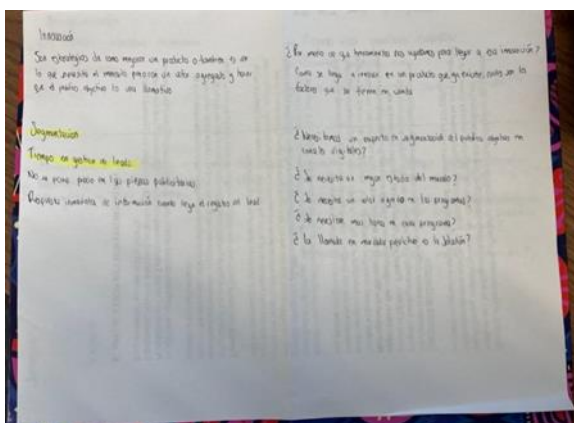 Innovación
Son estrategias de como mejorar un producto o tambien es ver
lo que necesita el mercado para dar un valor agregado y hacer
que el publico objetivo lo vea llamativo
Segmentación
Tiempo en gestion de leads.
No se pone precio en las piezas publicitarias
Respuesta inmediata de información cuando llega el registro del lead
¿Por medio de que herramientas nos vamos para llegar a esa innovación?
Como se llega a innovar en un producto que ya existe, cuales son los
factores que se tienen en cuenta
¿Necesitamos un experto en segmentación del publico objetivo en
canales digitales?
¿Se necesita un mejor estudio del mercado?
¿Se necesita un valor agregado en los programas?
¿Se necesitan mas en cada programa?
¿La llamada es la solución?